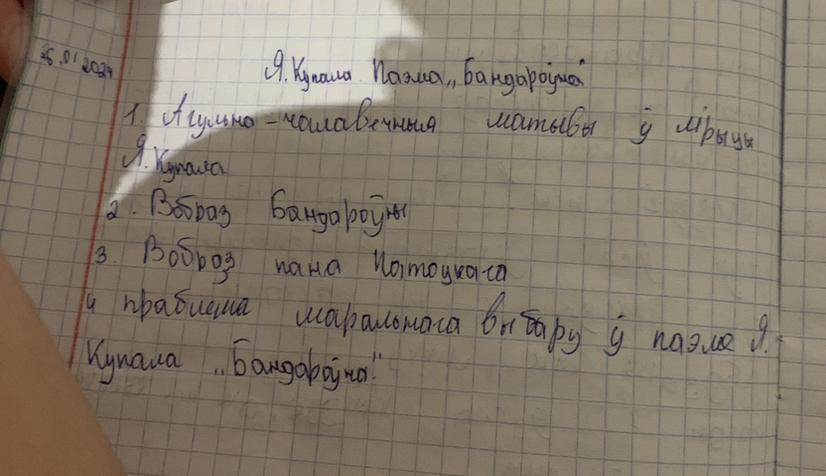 26.01 2024
Я. Купала. Паэма „Бандароўна"
1. Агульна-чалавечныя матывы ў лірыцы
Я. Купала
2. Вобраз Бандароўны
3. Вобраз пана Патоцкага
4 праблема маральнага выбару ў паэме Я.
Купала „Бандароўна."